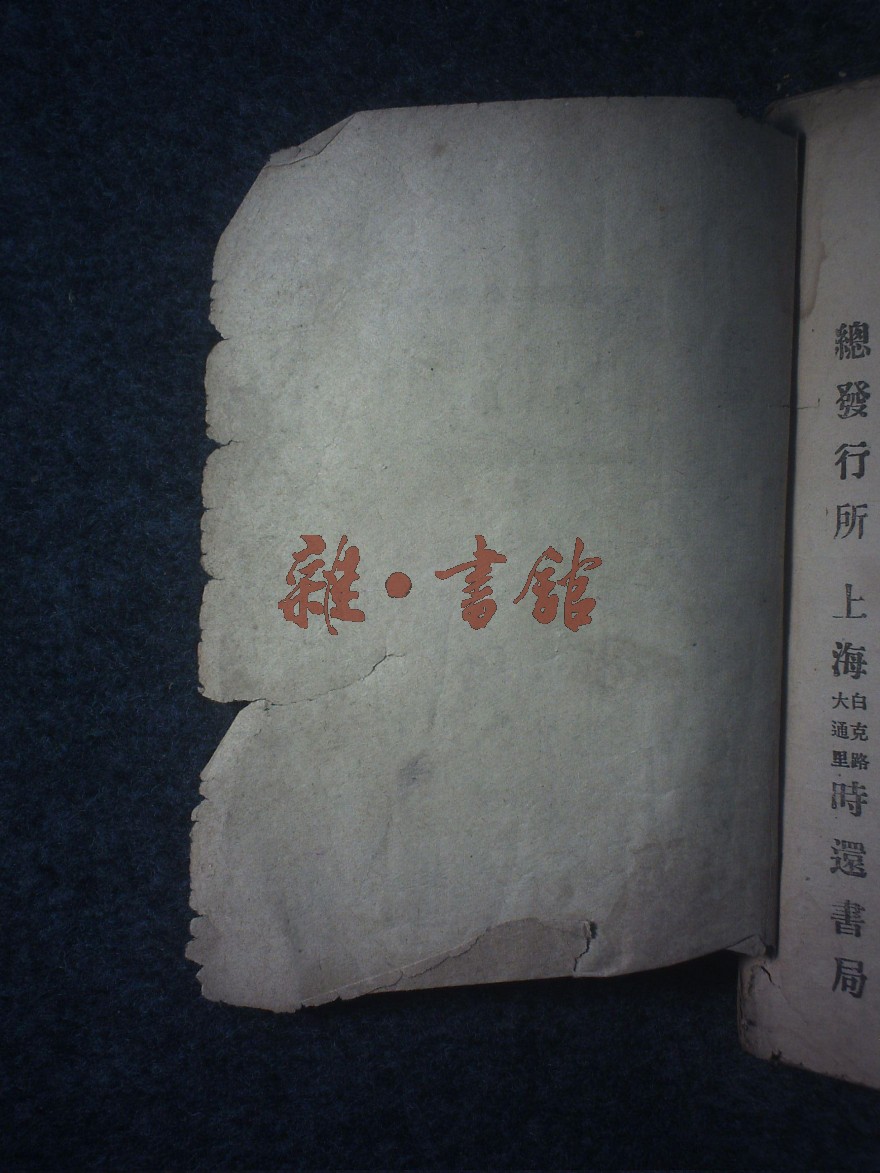 總發行所 上海白克路大通里時還書局
雜·書館